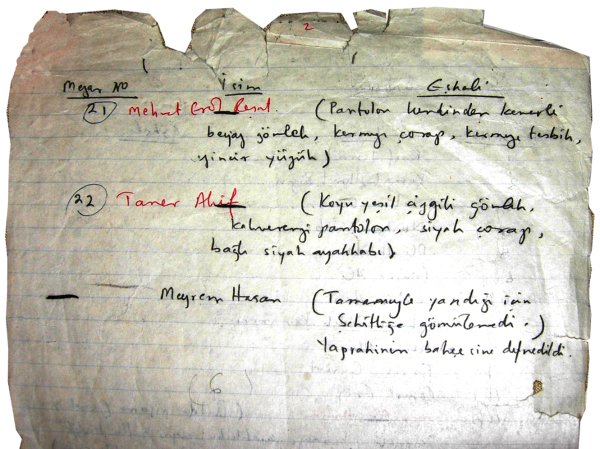 2
Mezar No İsim Eşkali
21 Mehmet Erol Reşat (Pantolon kendinden kemerli
beyaz gömlek, kırmızı çorap, kırmızı tesbih,
zincir yüzük)
22 Taner Akif (Koyu yeşil çizgili gömlek,
kahverengi pantolon, siyah çorap,
bağlı siyah ayakkabı)
— Meyrem Hasan (Tamamıyle yandığı için
Şehitliğe gömülemedi.)
Yaprahinin bahçesine defnedildi.
(6)